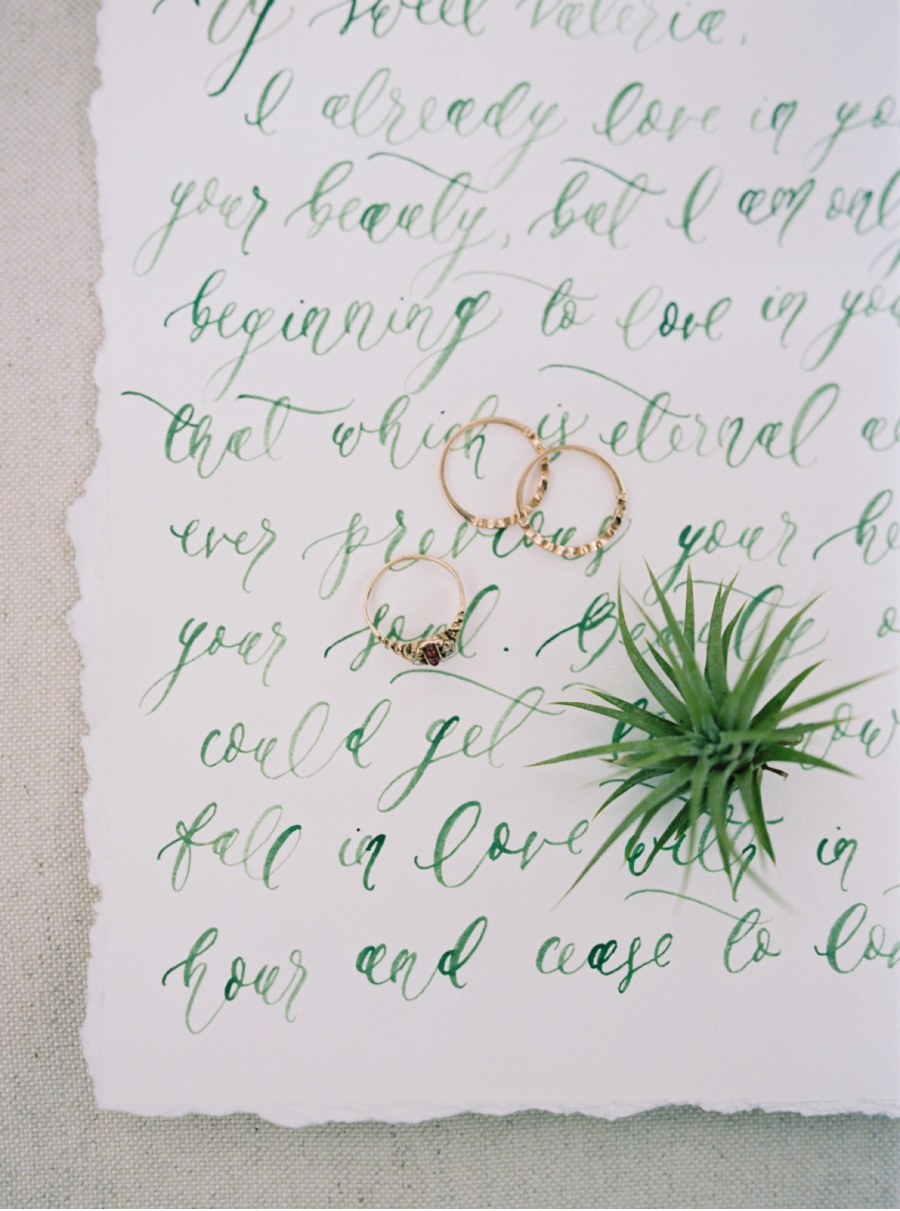 My sweet Valeria,
I already love in you
your beauty, but I am only
beginning to love in you
that which is eternal and
ever precious your heart
your soul. Beauty one
could get to know
fall in love with in
hour and cease to love